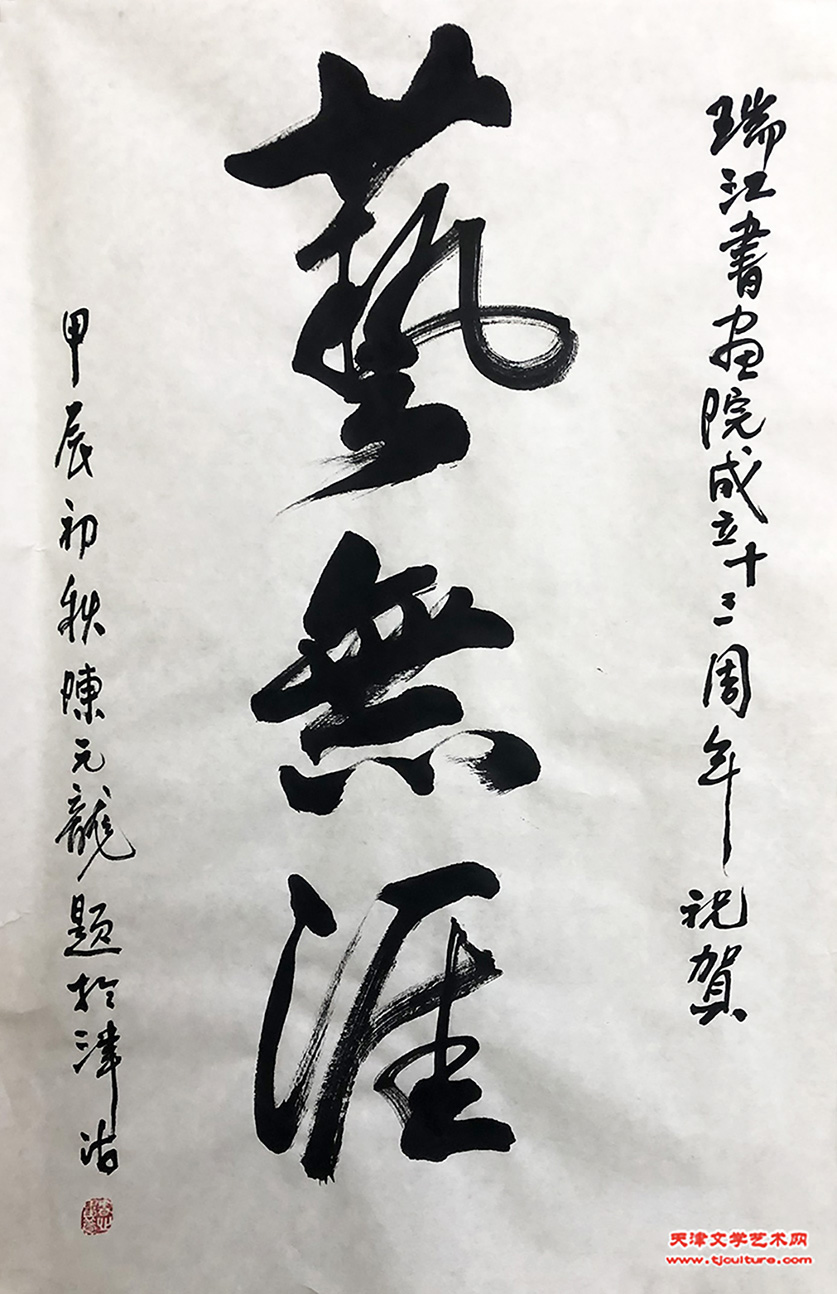 瑞江書畫院成立十二周年祝賀
藝無涯
甲辰初秋陳元龍題於津沽
天津文学艺术网
www.tjculture.com